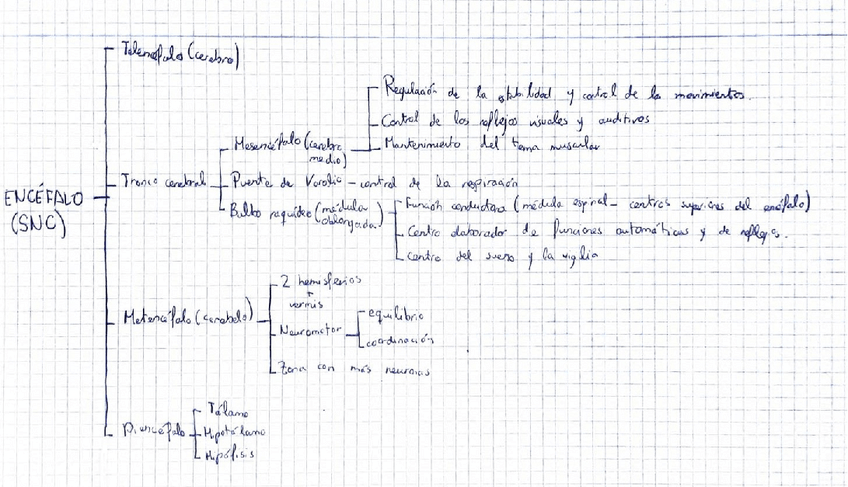 Telencéfalo (cerebro)
Regulación de la estabilidad y control de los movimientos.
Control de los reflejos visuales y auditivos
Mesencéfalo (cerebro
medio)
Mantenimiento del tono muscular
Tronco cerebral
Puente de Varolio - control de la respiración
ENCÉFALO
(SNC)
Bulbo raquídeo (médula
oblongada)
Función conductora (médula espinal - centros superiores del encéfalo)
Centro elaborador de funciones automáticas y de reflejos.
Centro del sueño y la vigilia
2 hemisferios
+
vermis
Metencéfalo (cerebelo)
Neuromotor
equilibrio
coordinación
Zona con más neuronas
Diencéfalo
Tálamo
Hipotálamo
Hipófisis